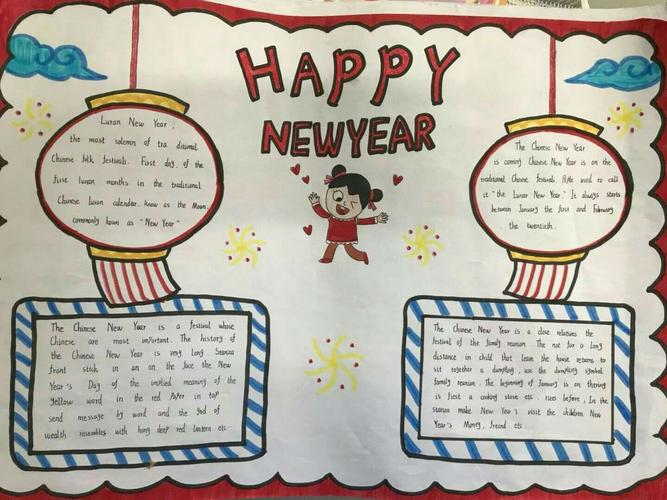 HAPPY
NEW YEAR
Luran New Year,
the most solemn of tra ditional
Chinese folk festivals. First day of the
first lunar months in the traditional
Chinese lunar calendar. know as the Moon.
commonly known as "New Year"
The Chinese New Year
is coming Chinese New Year is on the
traditional Chinese festivals. People used to call
it "the Lunar New Year." It always starts
between January the first and February
the twentieth.
The Chinese New Year is a festival whose
Chinese are most important. The history of
the Chinese New Year is very long. Stanza
front stick in an on the face the New
Year's Day of the implied meaning of the
Yellow word in the red Paper in top
send message by word and the god of
wealth resembles with hang deep red lantern etc
The Chinese New Year is a close relatives the
festival of the family reunion. The not for a long
distance in child that leave the house returns to
sit together a dumpling, use the dumpling symbol
family reunion. The beginning of January is on thering
is first a cooking stove etc. rises before, In the
stanza make New Year's visit the children New
Year's Money, friend etc